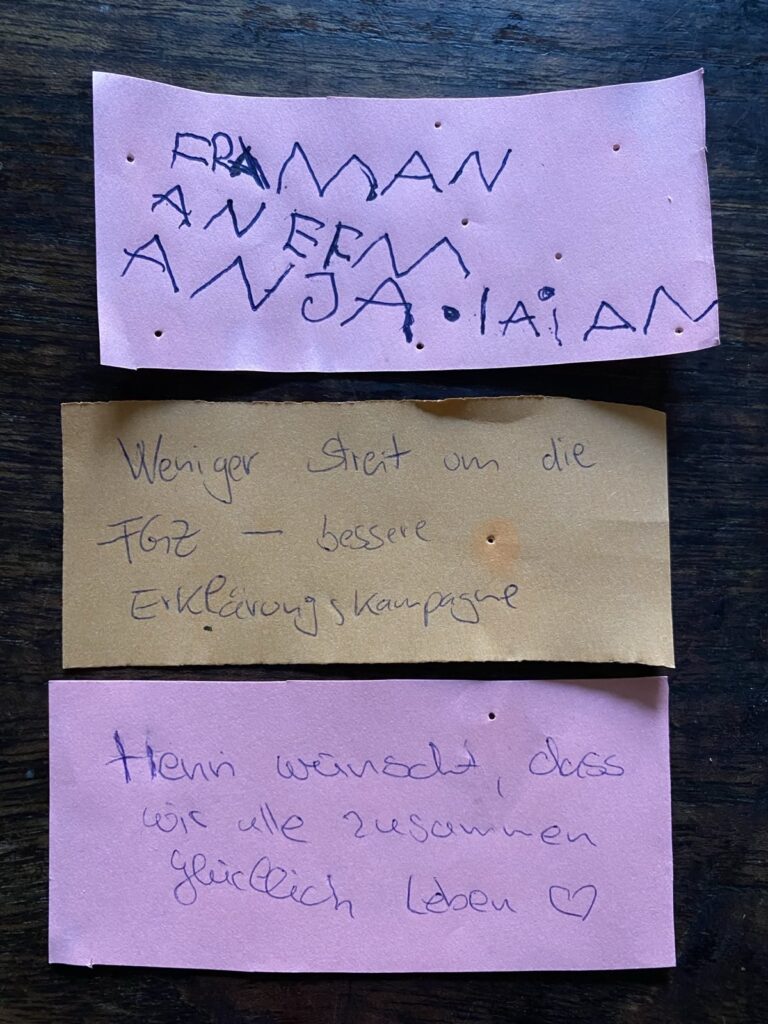 FRAMAN
AN EFM
ANJA.IAiAN
Weniger Streit um die
FGZ – bessere
Erklärungskampagne
Henri wünscht, dass
wir alle zusammen
glücklich Leben ♡